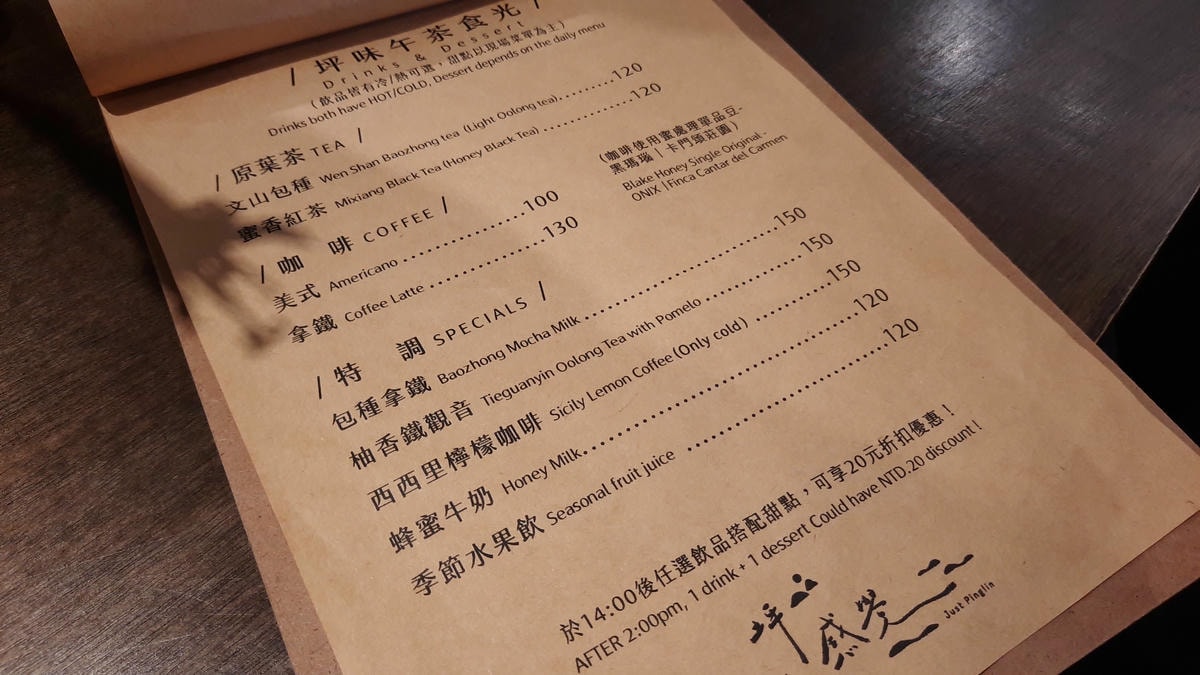 / 坪味午茶食光 /
Drinks & Dessert
(飲品皆有冷/熱可選，甜點以現場菜單為主)
Drinks both have HOT/COLD, Dessert depends on the daily menu
/ 原葉茶 TEA /
文山包種 Wen Shan Baozhong tea (Light Oolong tea).........120
蜜香紅茶 Mixiang Black Tea (Honey Black Tea) ..............120
/ 咖 啡 COFFEE /
(咖啡使用蜜處理單品豆-
黑瑪瑙｜卡門頌莊園)
Blake Honey Single Original -
ONIX |Finca Cantar del Carmen
美式 Americano ..................100
拿鐵 Coffee Latte .................130
/ 特 調 SPECIALS /
包種拿鐵 Baozhong Mocha Milk ............................150
柚香鐵觀音 Tieguanyin Oolong Tea with Pomelo ..............150
西西里檸檬咖啡 Sicily Lemon Coffee (Only cold) ...........150
蜂蜜牛奶 Honey Milk........................................120
季節水果飲 Seasonal fruit juice ..............................120
於14:00後任選飲品搭配甜點，可享20元折扣優惠！
AFTER 2:00pm, 1 drink + 1 dessert Could have NTD.20 discount！
坪山感覺
Just Pinglin